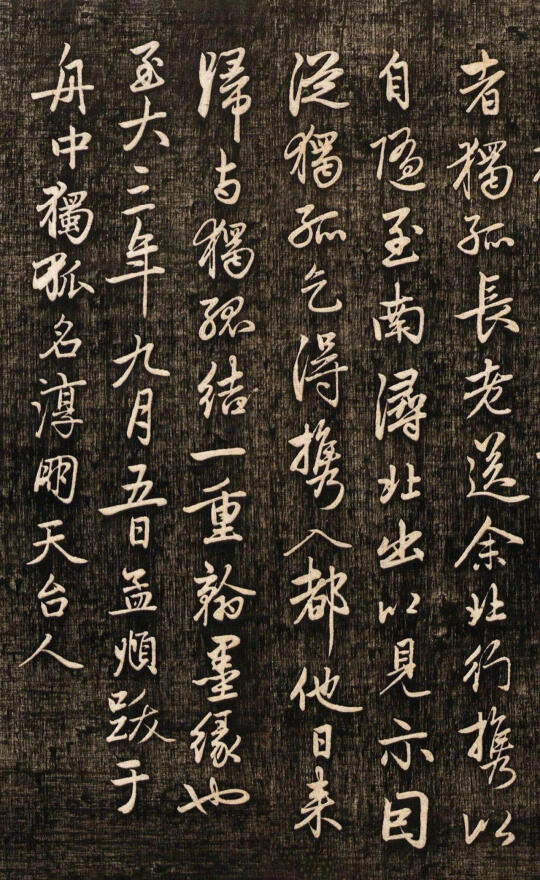 者獨孤長老送余北行攜以
自隨至南潯北出以見示因
從獨孤乞得攜入都他日來
歸与獨孤結一重翰墨緣也
至大三年九月五日孟頫跋于
舟中獨孤名淳朋天台人